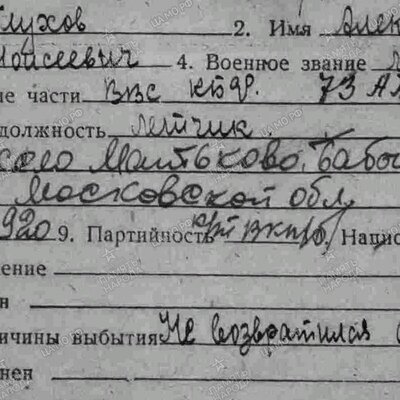 лухов 2. Имя Алек
Моисеевич 4. Военное звание
ие части ВВС КБФ. 73 А
должность летчик
село Мальково, Бабо
Московской обл,
920 9. Партийность чл ВКП/б/. Напис
ение
н
ичины выбытия Не возвратился с
нен